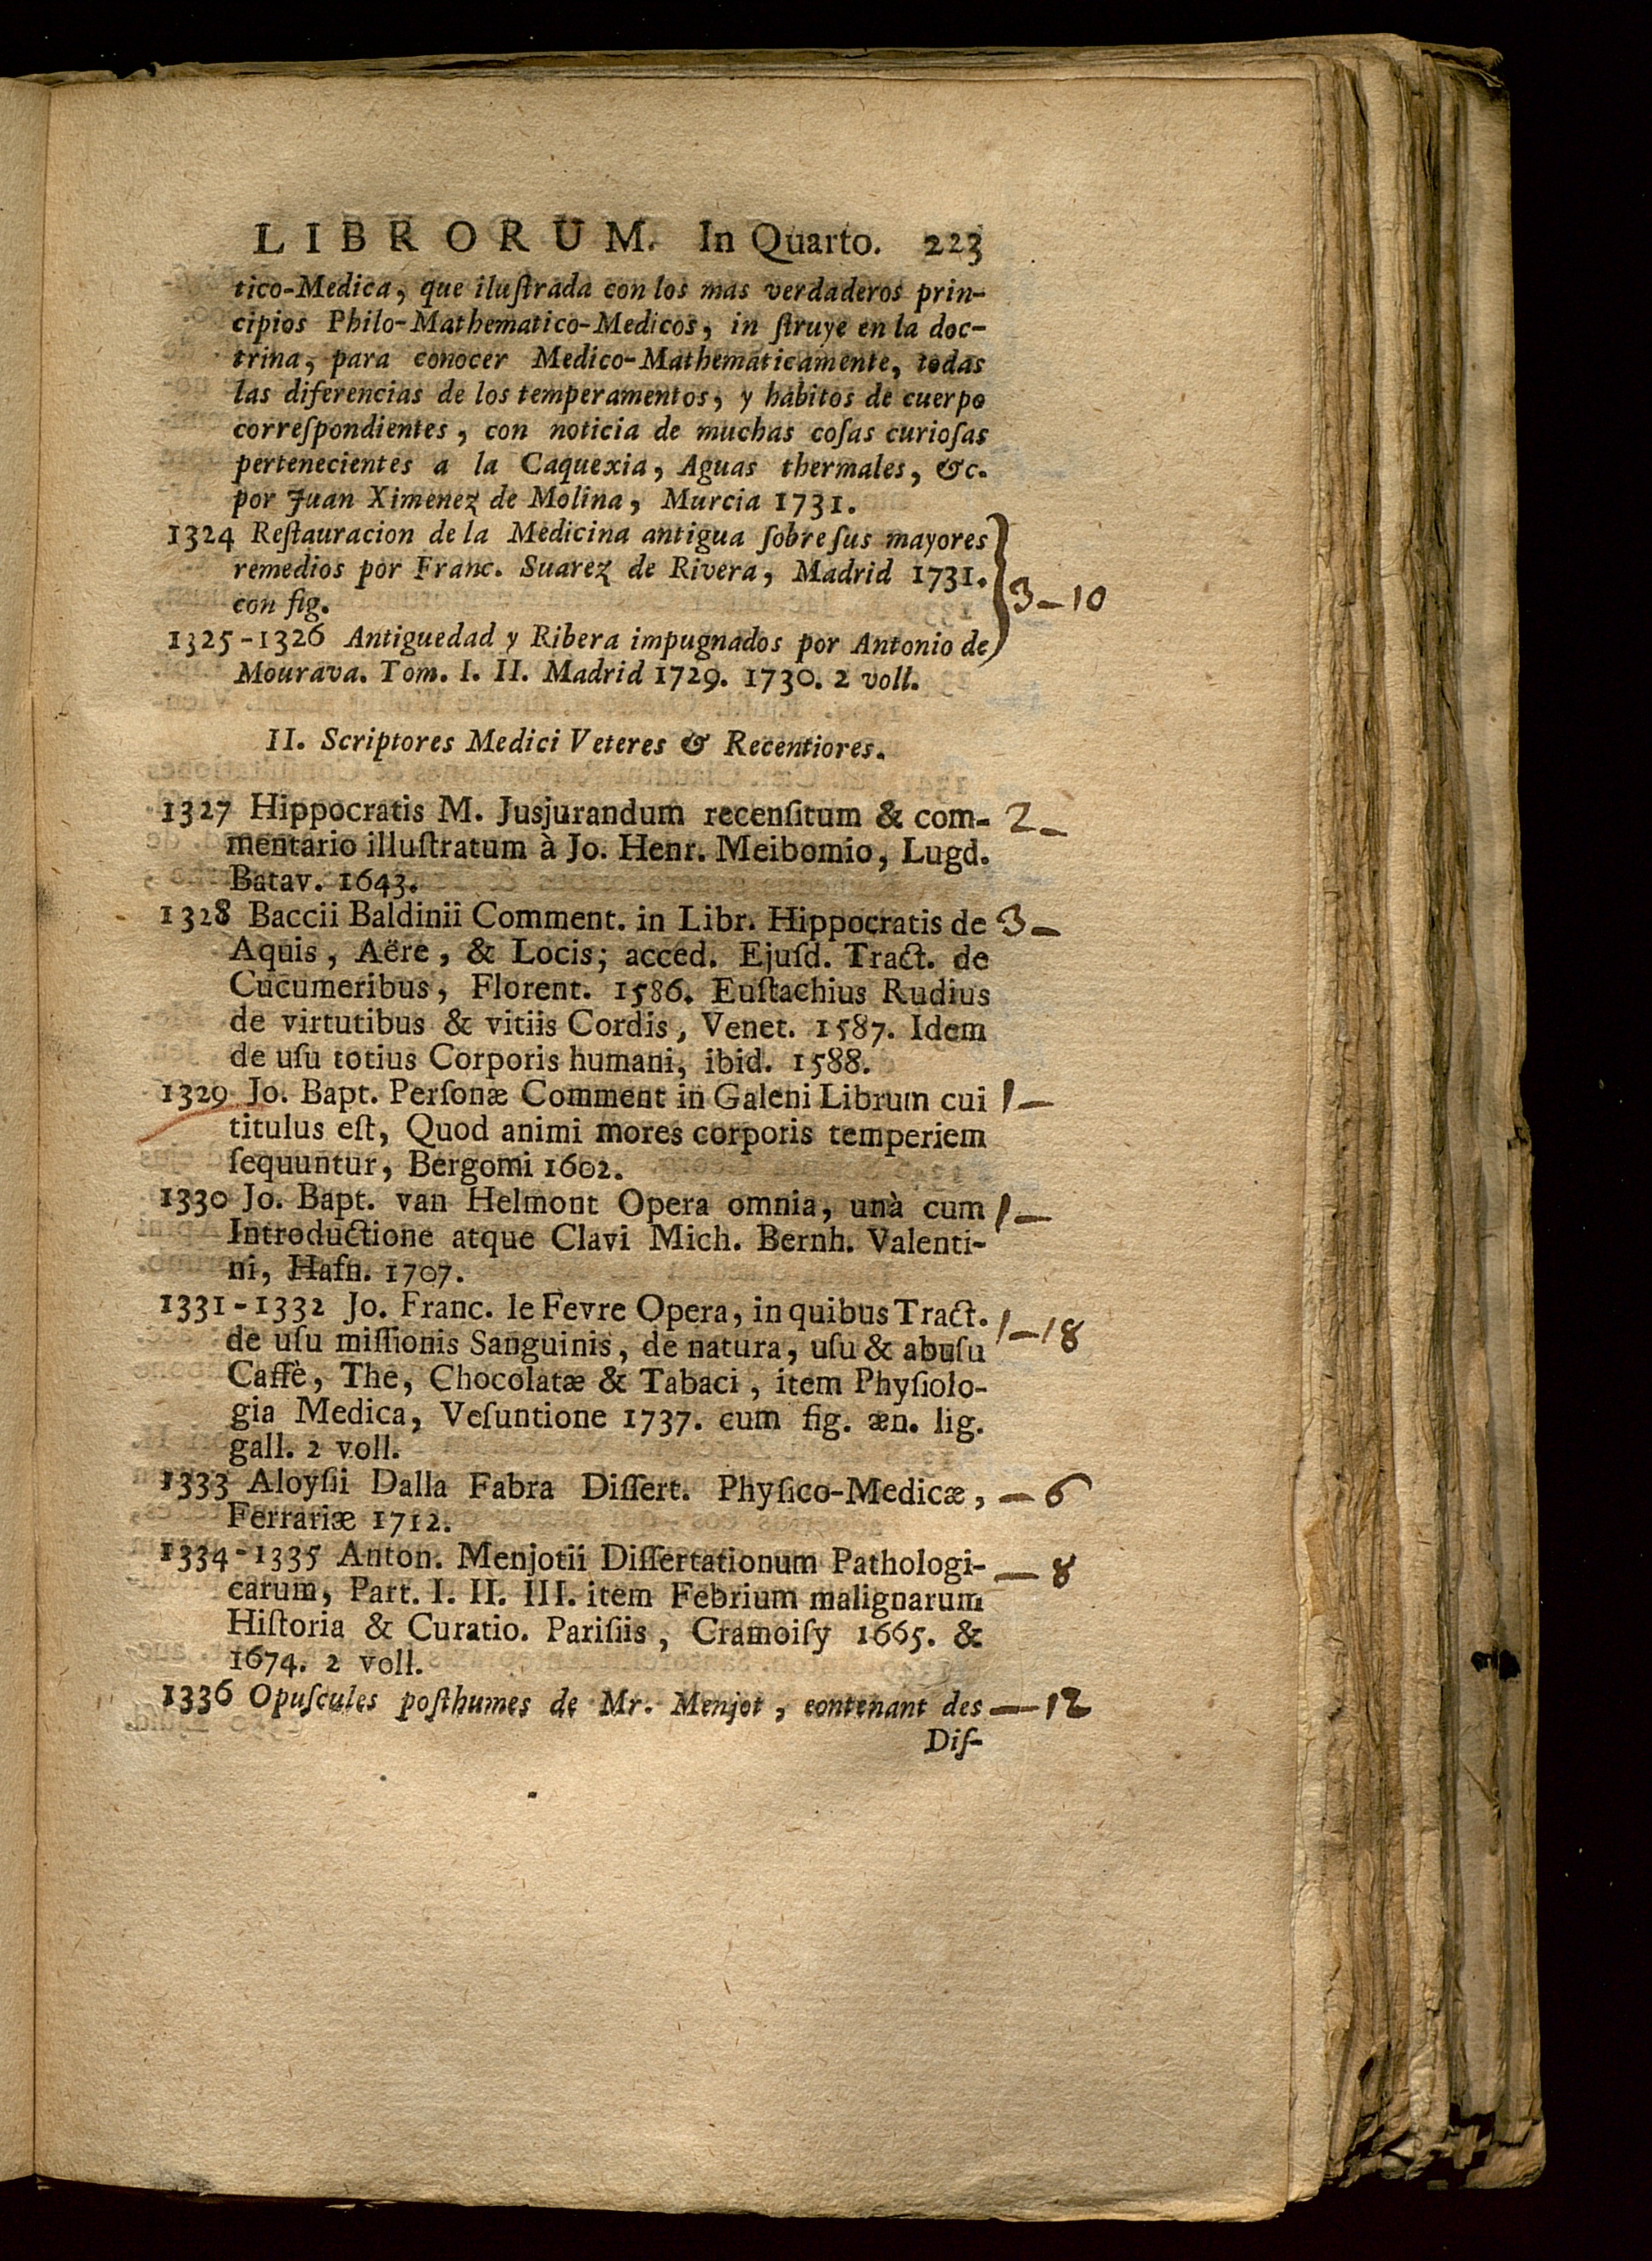 LIBRORUM. In Quarto. 223
tico-Medica, que iluſtrada con los mas verdaderos prin-
cipios Philo-Mathematico-Medicos, in ſtruye en la doc-
trina, para conocer Medico-Mathematicamente, todas
las diferencias de los temperamentos, y habitos de cuerpo
correſpondientes, con noticia de muchas coſas curioſas
pertenecientes a la Caquexia, Aguas thermales, &c.
por Juan Ximenez de Molina, Murcia 1731.
1324 Reſtauracion de la Medicina antigua ſobre ſus mayores
remedios por Franc. Suarez de Rivera, Madrid 1731.
con fig. 3-10
1325-1326 Antiguedad y Ribera impugnados por Antonio de
Mourava. Tom. I. II. Madrid 1729. 1730. 2 voll.
II. Scriptores Medici Veteres & Recentiores.
1327 Hippocratis M. Jusjurandum recenſitum & com- 2-
mentario illuſtratum à Jo. Henr. Meibomio, Lugd.
Batav. 1643.
1328 Baccii Baldinii Comment. in Libr. Hippocratis de 3-
Aquis, Aëre, & Locis; acced. Ejuſd. Tract. de
Cucumeribus, Florent. 1586. Euſtachius Rudius
de virtutibus & vitiis Cordis, Venet. 1587. Idem
de uſu totius Corporis humani, ibid. 1588.
1329 Jo. Bapt. Perſonæ Comment in Galeni Librum cui 1-
titulus eſt, Quod animi mores corporis temperiem
ſequuntur, Bergomi 1602.
1330 Jo. Bapt. van Helmont Opera omnia, unà cum 1-
Introductione atque Clavi Mich. Bernh. Valenti-
ni, Hafn. 1707.
1331-1332 Jo. Franc. le Fevre Opera, in quibus Tract. 1-18
de uſu miſſionis Sanguinis, de natura, uſu & abuſu
Caffè, The, Chocolatæ & Tabaci, item Phyſiolo-
gia Medica, Veſuntione 1737. cum fig. æn. lig.
gall. 2 voll.
1333 Aloyſii Dalla Fabra Diſſert. Phyſico-Medicæ, -6
Ferrariæ 1712.
1334-1335 Anton. Menjotii Diſſertationum Pathologi- -8
carum, Part. I. II. III. item Febrium malignarum
Hiſtoria & Curatio. Pariſiis, Cramoiſy 1665. &
1674. 2 voll.
1336 Opuſcules poſthumes de Mr. Menjot, contenant des -12
Diſ-